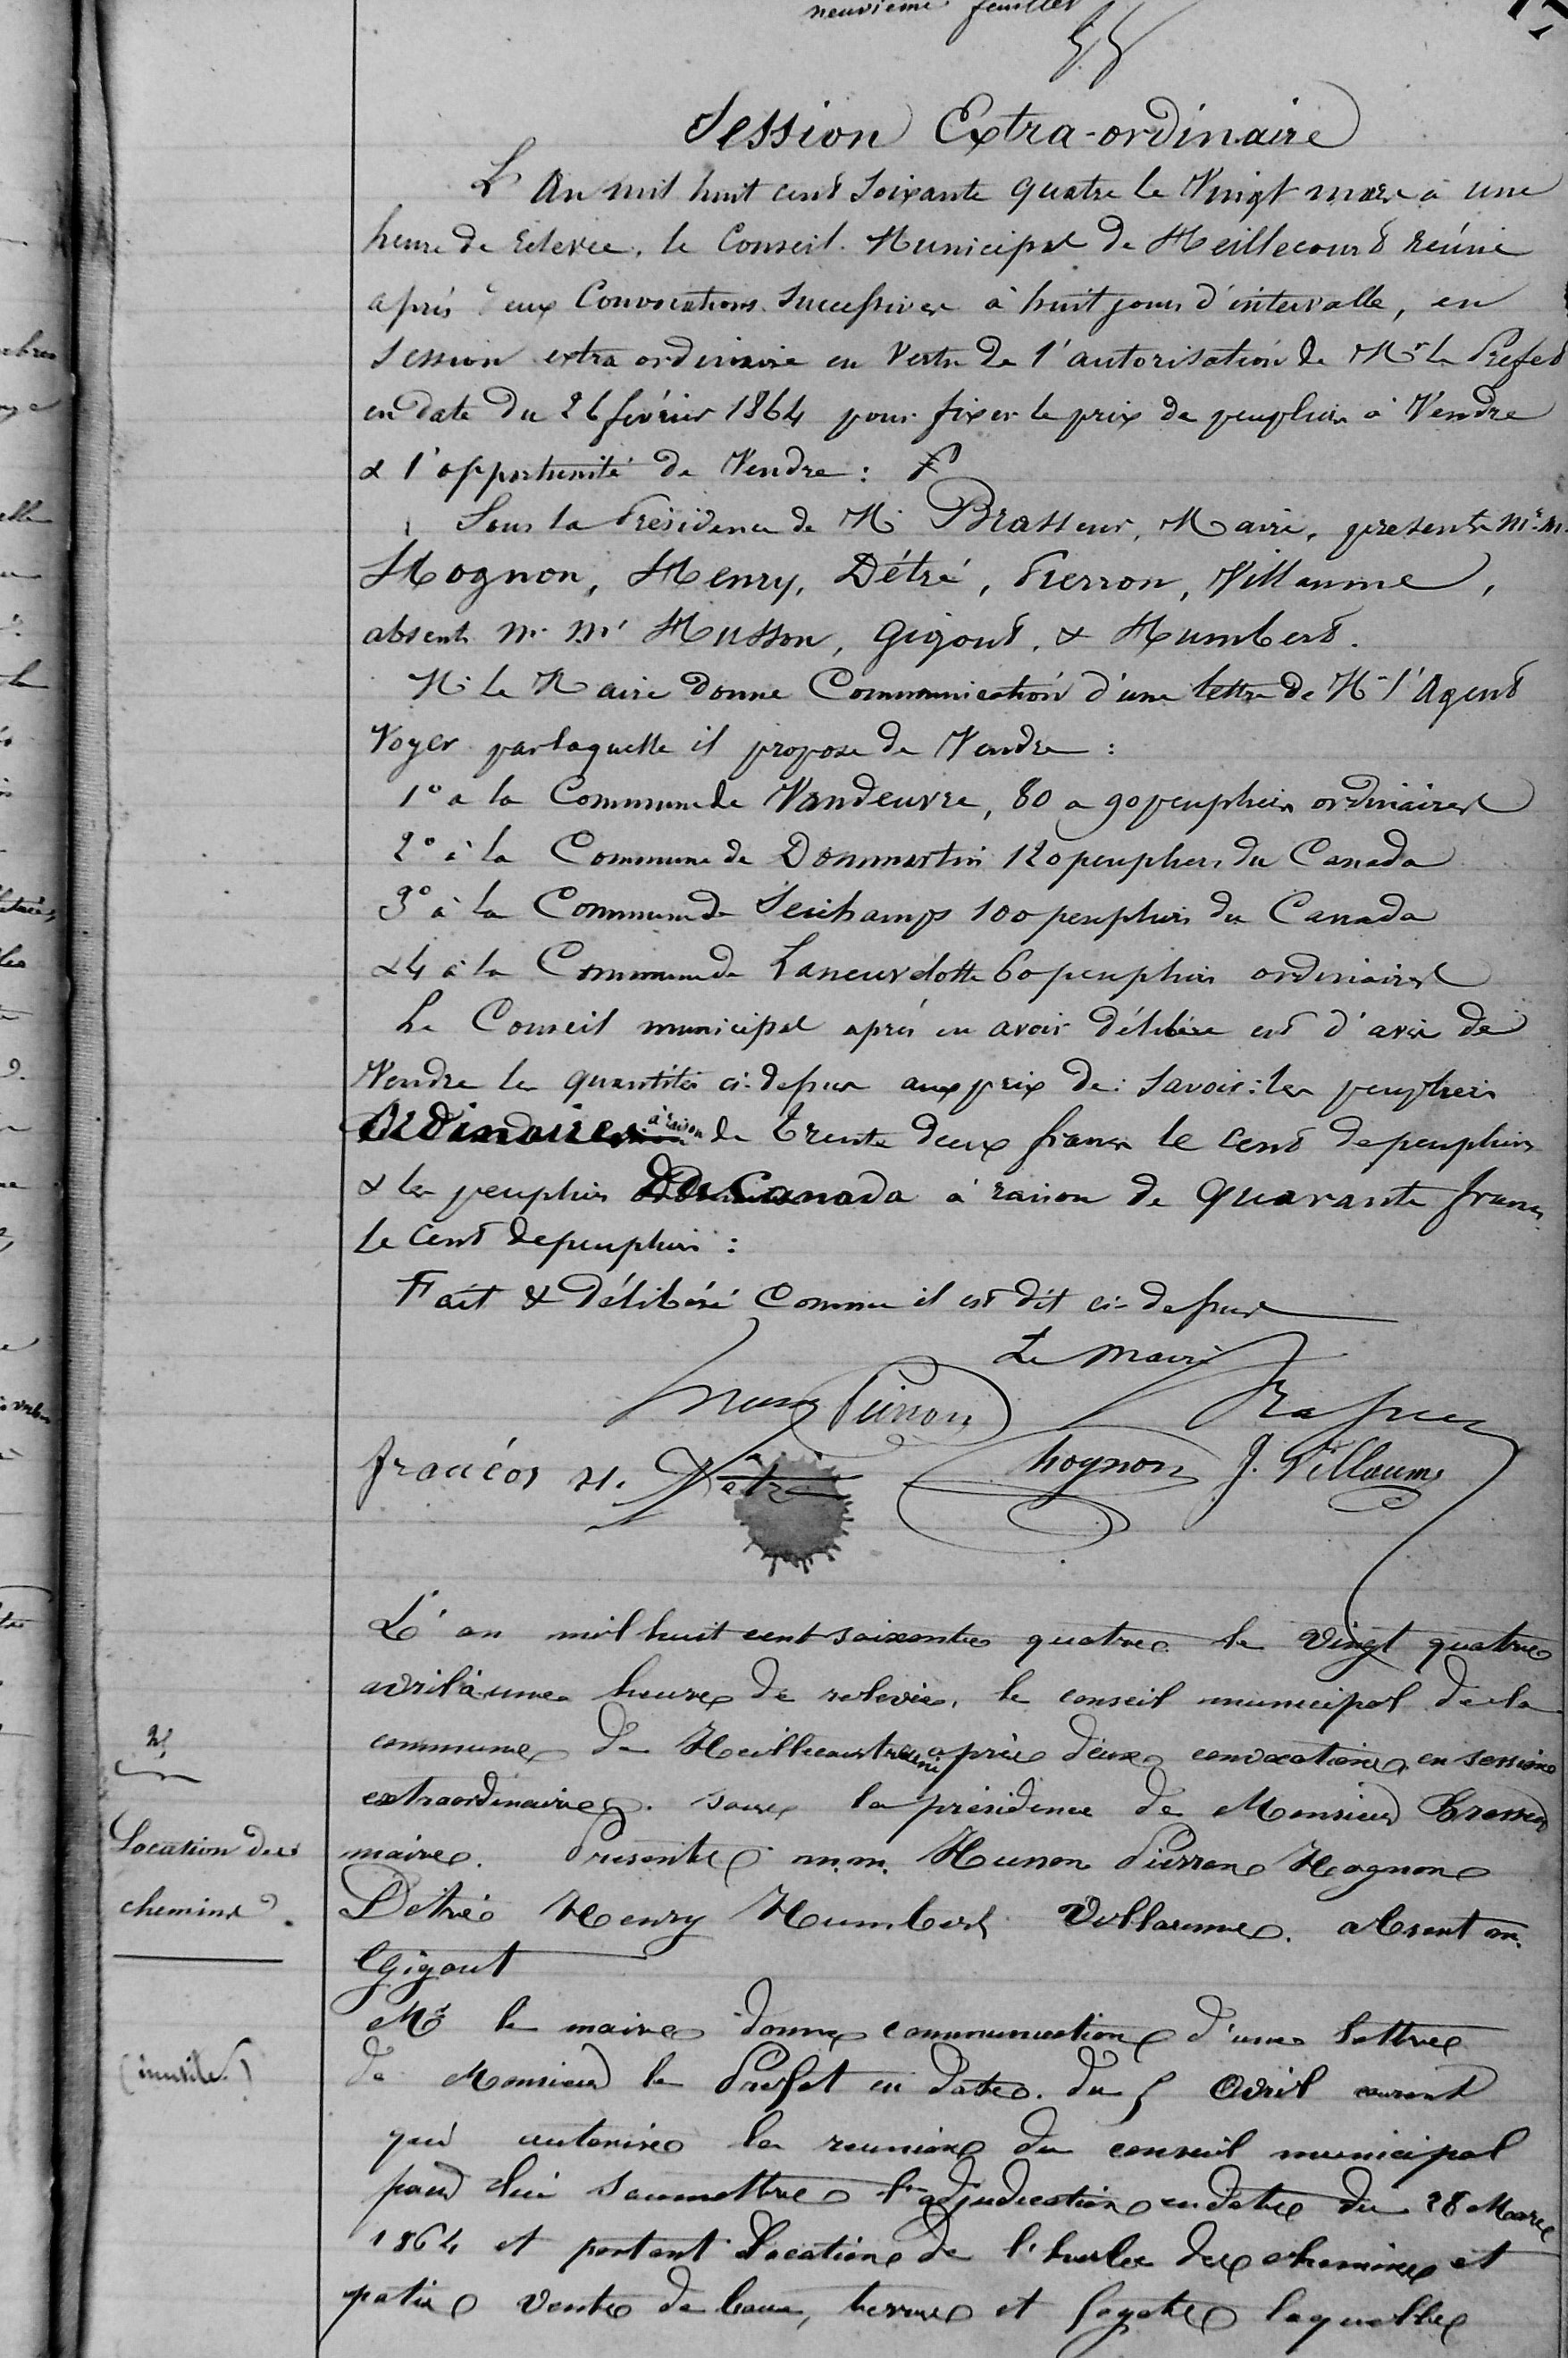 neuvième feuillet
Session Extra-ordinaire
L'An mil huit cent soixante quatre le Vingt mars à une
heure de relevée, le Conseil Municipal de Heillecourt réunie
après deux Convocations successives à huit jours d'intervalle, en
Session extra ordinaire en vertu de l'autorisation de Mr le Préfet
en date du 26 février 1864 pour fixer le prix de peupliers à Vendre
& l'opportunité de Vendre :
Sous la Présidence de M. Brasseur, Maire, présents Mr. M.
Hognon, Henry, Détré, Pierron, Villaume,
absents M. Mr Husson, Gigout, & Humbert.
M. le Maire donne Communication d'une lettre de Mr l'Agent
Voyer par laquelle il propose de Vendre :
1° a la Commune de Vandeuvre, 80 a 90 peupliers ordinaires
2° à la Commune de Dommartin 120 peupliers du Canada
3° à la Commune de Seichamps 100 peupliers du Canada
& 4 à la Commune de Laneuvelotte 60 peupliers ordinaires
Le Conseil municipal après en avoir délibéré est d'avis de
Vendre les quantités ci-dessus aux prix de : Savoir : les peupliers
Ordinaires à raison de trente deux francs le cent de peupliers
& les peupliers Du Canada à raison de quarante francs
le cent de peupliers :
Fait & délibéré Comme il est dit ci-dessus
Le Maire
Pierron Brasseur
H. Détré hognon J. Villaume
L'an mil huit cent soixante quatre le vingt quatre
avril à une heure de relevée, le conseil municipal de la
commune de Heillecourt réuni après deux convocations, en session
extraordinaire. sous la présidence de Monsieur Brasseur
maire. Présents m.m. Husson Pierron Hognon
Détré Henry Humbert Villaume. absent m.
Gigout
Mr le maire donne communication d'une lettre
de Monsieur le Préfet en date du 5 avril courant
qui autorise la réunion du conseil municipal
pour lui soumettre l'adjudication en date du 28 Mars
1864 et portant Location de l'herbe des chemins et
patis vente de boue, terre et fagots laquelle
2
Location des
chemins.
(inutile)